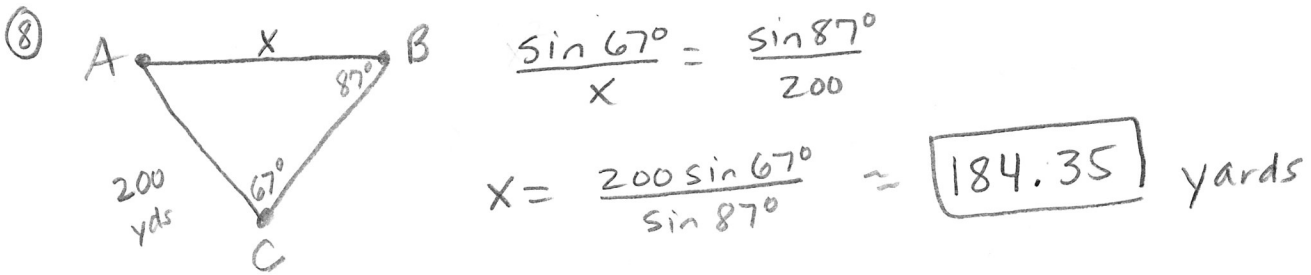 ⑧
A x B
87°
200 yds
67°
C
sin 67° / x = sin 87° / 200
x = 200 sin 67° / sin 87° ≈ 184.35 yards